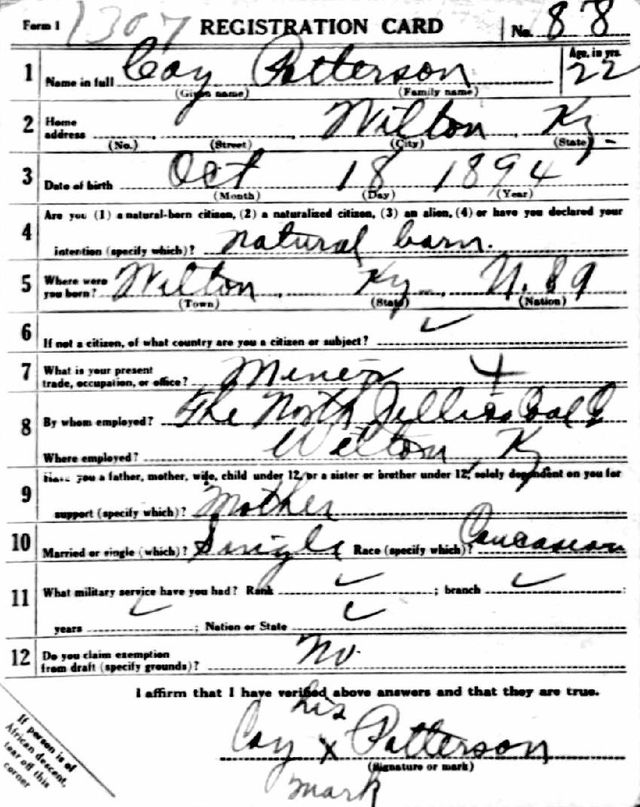 Form 1 1307 REGISTRATION CARD No. 88
1 Name in full Coy Patterson Age, in yrs. 22
(Given name) (Family name)
2 Home address Wilton, Ky.
(No.) (Street) (City) (State)
3 Date of birth Oct 18 1894
(Month) (Day) (Year)
4 Are you (1) a natural-born citizen, (2) a naturalized citizen, (3) an alien, (4) or have you declared your
intention (specify which)? natural barn.
5 Where were you born? Wilton, Ky.,
(Town) (State) (Nation)
6 If not a citizen, of what country are you a citizen or subject? ✓
7 What is your present
trade, occupation, or office? Miner 4
8 By whom employed? The North Jellico Coal C
Where employed? Wilton, Ky
9 Have you a father, mother, wife, child under 12, or a sister or brother under 12, solely dependent on you for
support (specify which)? Mother
10 Married or single (which)? Single Race (specify which)? Caucasian
11 What military service have you had? Rank ✓ ; branch ✓ ;
years ✓ ; Nation or State ✓
12 Do you claim exemption
from draft (specify grounds)? No.
I affirm that I have verified above answers and that they are true.
his
Coy x Patterson
(Signature or mark)
mark
If person is of
African descent,
tear off this
corner